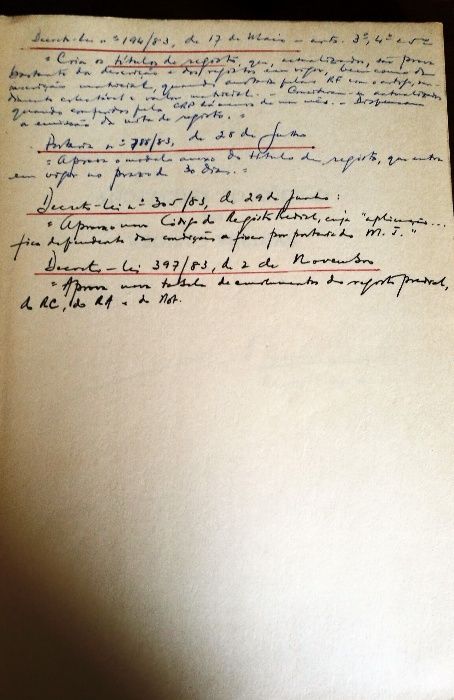 Decreto-lei nº 194/83, de 17 de Maio - arts. 3º, 4º e 5º
" Cria os títulos de registo, que, actualizados, são prova
bastante da descrição e dos registos em vigor, bem como da
inscrição matricial, quando pela RF com o artigo,
e valor matricial.
quando conferidos pela CRP há menos de um mês. - Dispensam
a emissão da nota de registo. "
Portaria nº 788/83, de 28 de Julho
" Aprova o modelo anexo do título de registo, que entra
em vigor no prazo de 30 dias. "
Decreto-lei nº 305/83, de 29 de Junho:
" Aprova o novo Código do Registo Predial, cuja "aplicação...
fica dependente das condições a fixar por portaria do M. J. "
Decreto-lei 397/83, de 2 de Novembro
" Aprova nova tabela de emolumentos do registo predial,
do RC, do RA e do Not.